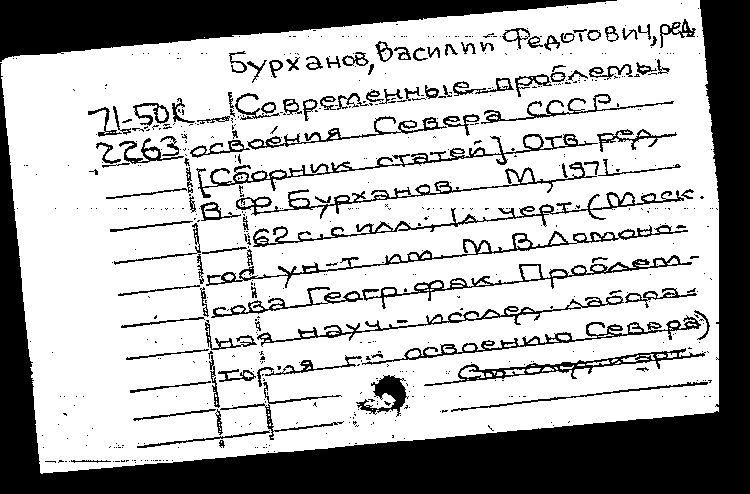 Бурханов, Василий Федотович, ред.
71-50к Современные проблемы
2263 освоения Севера СССР.
[Сборник статей]. Отв. ред.
В.Ф. Бурханов. М., 1971.
62 с. с илл.; 1л. черт. (Моск.
гос. ун-т им. М.В. Ломоно-
сова Геогр. фак. Проблем-
ная науч.- исслед. лабора-
тория по освоению Севера)
См. след. карт.